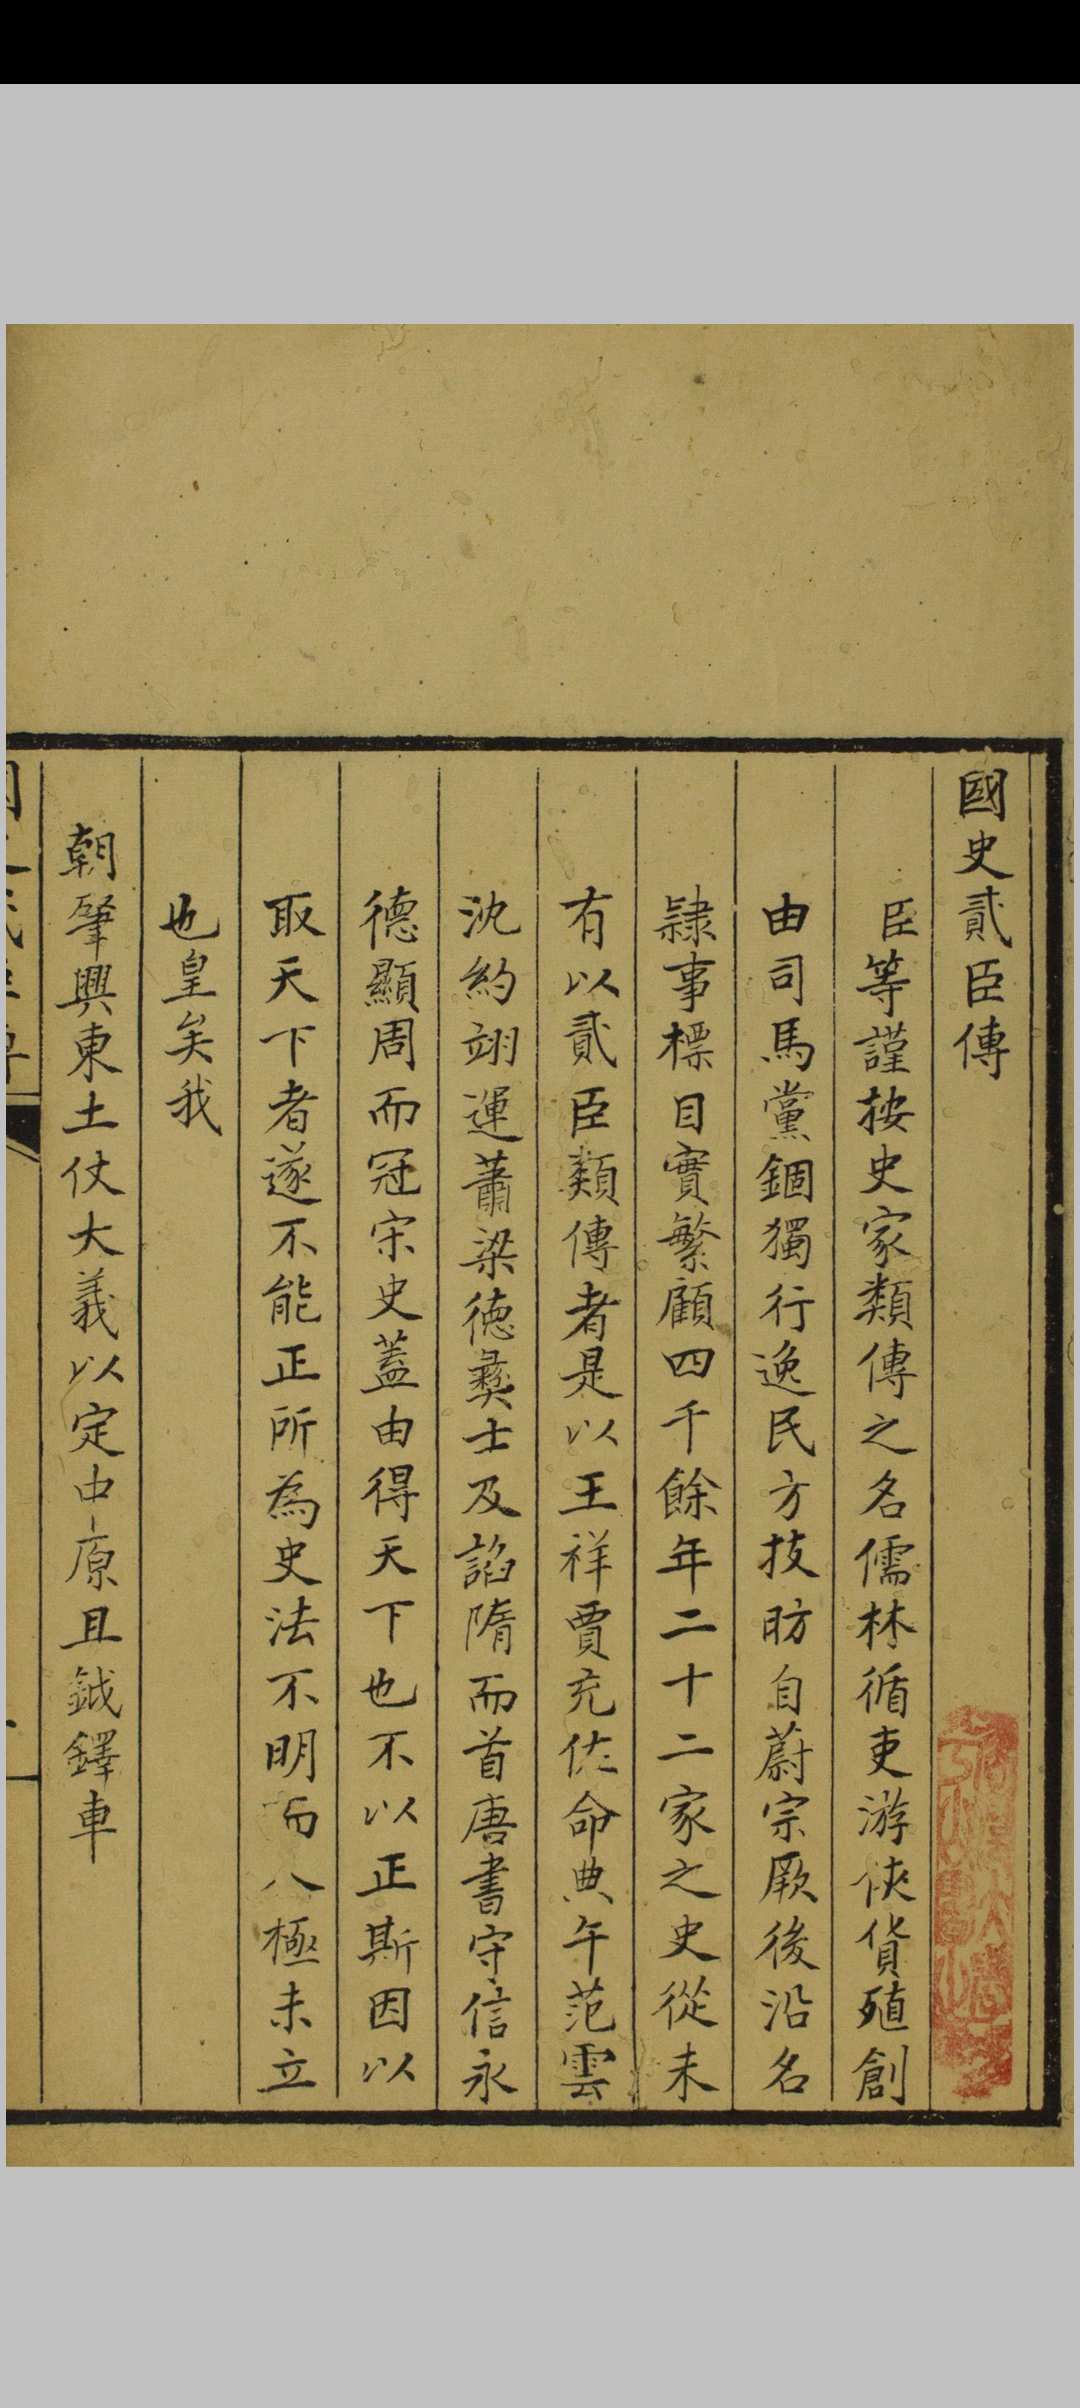 國史貳臣傳
臣等謹按史家類傳之名儒林循吏游俠貨殖創
由司馬黨錮獨行逸民方技昉自蔚宗厥後沿名
隸事標目實繁顧四千餘年二十二家之史從未
有以貳臣類傳者是以王祥賈充佐命典午范雲
沈約翊運蕭梁德彝士及諂隋而首唐書守信永
德顯周而冠宋史蓋由得天下也不以正斯因以
取天下者遂不能正所為史法不明而八極未立
也皇矣我
朝肇興東土仗大義以定中原且鉞鐸車